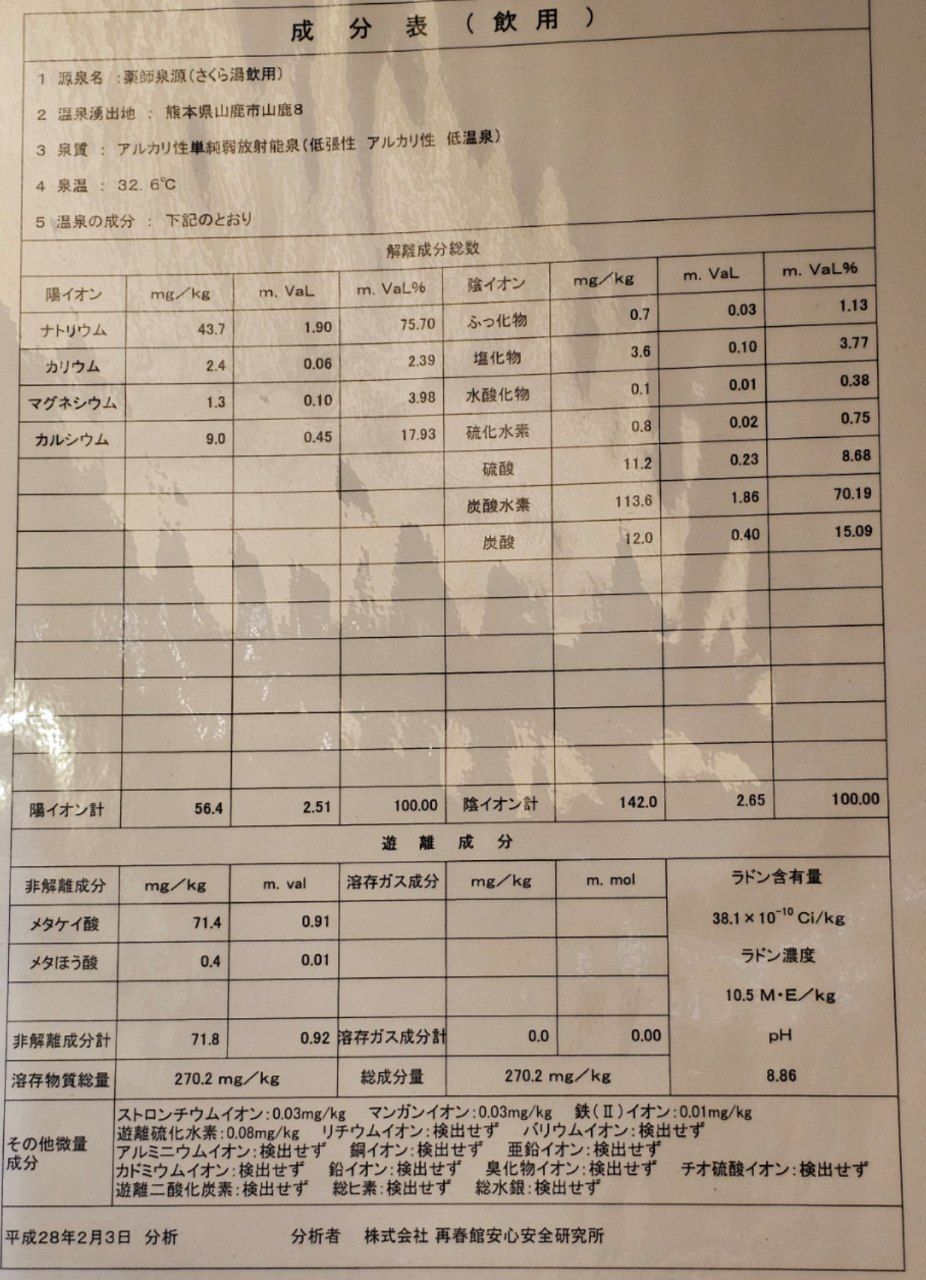 成分表(飲用)
1 源泉名 :薬師泉源(さくら湯飲用)
2 温泉湧出地 : 熊本県山鹿市山鹿8
3 泉質 : アルカリ性単純弱放射能泉(低張性 アルカリ性 低温泉)
4 泉温 : 32.6℃
5 温泉の成分 : 下記のとおり
解離成分総数
陽イオン mg/kg m. VaL m. VaL% 陰イオン mg/kg m. VaL m. VaL%
ナトリウム 43.7 1.90 75.70 ふっ化物 0.7 0.03 1.13
カリウム 2.4 0.06 2.39 塩化物 3.6 0.10 3.77
マグネシウム 1.3 0.10 3.98 水酸化物 0.1 0.01 0.38
カルシウム 9.0 0.45 17.93 硫化水素 0.8 0.02 0.75
硫酸 11.2 0.23 8.68
炭酸水素 113.6 1.86 70.19
炭酸 12.0 0.40 15.09
陽イオン計 56.4 2.51 100.00 陰イオン計 142.0 2.65 100.00
遊離成分
非解離成分 mg/kg m. val 溶存ガス成分 mg/kg m. mol ラドン含有量
メタケイ酸 71.4 0.91 38.1×10⁻¹⁰ Ci/kg
メタほう酸 0.4 0.01 ラドン濃度
10.5 M・E/kg
非解離成分計 71.8 0.92 溶存ガス成分計 0.0 0.00 pH
溶存物質総量 270.2 mg/kg 総成分量 270.2 mg/kg 8.86
その他微量成分
ストロンチウムイオン:0.03mg/kg マンガンイオン:0.03mg/kg 鉄(Ⅱ)イオン:0.01mg/kg
遊離硫化水素:0.08mg/kg リチウムイオン:検出せず バリウムイオン:検出せず
アルミニウムイオン:検出せず 銅イオン:検出せず 亜鉛イオン:検出せず
カドミウムイオン:検出せず 鉛イオン:検出せず 臭化物イオン:検出せず チオ硫酸イオン:検出せず
遊離二酸化炭素:検出せず 総ヒ素:検出せず 総水銀:検出せず
平成28年2月3日 分析 分析者 株式会社 再春館安心安全研究所